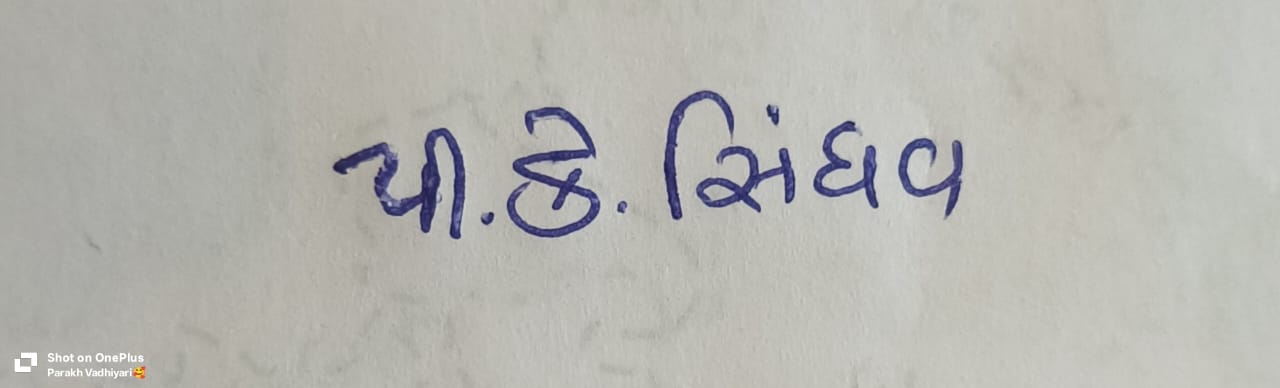 પી.કે. સિંધવ
Shot on OnePlus
Parakh Vadhiyari🥰